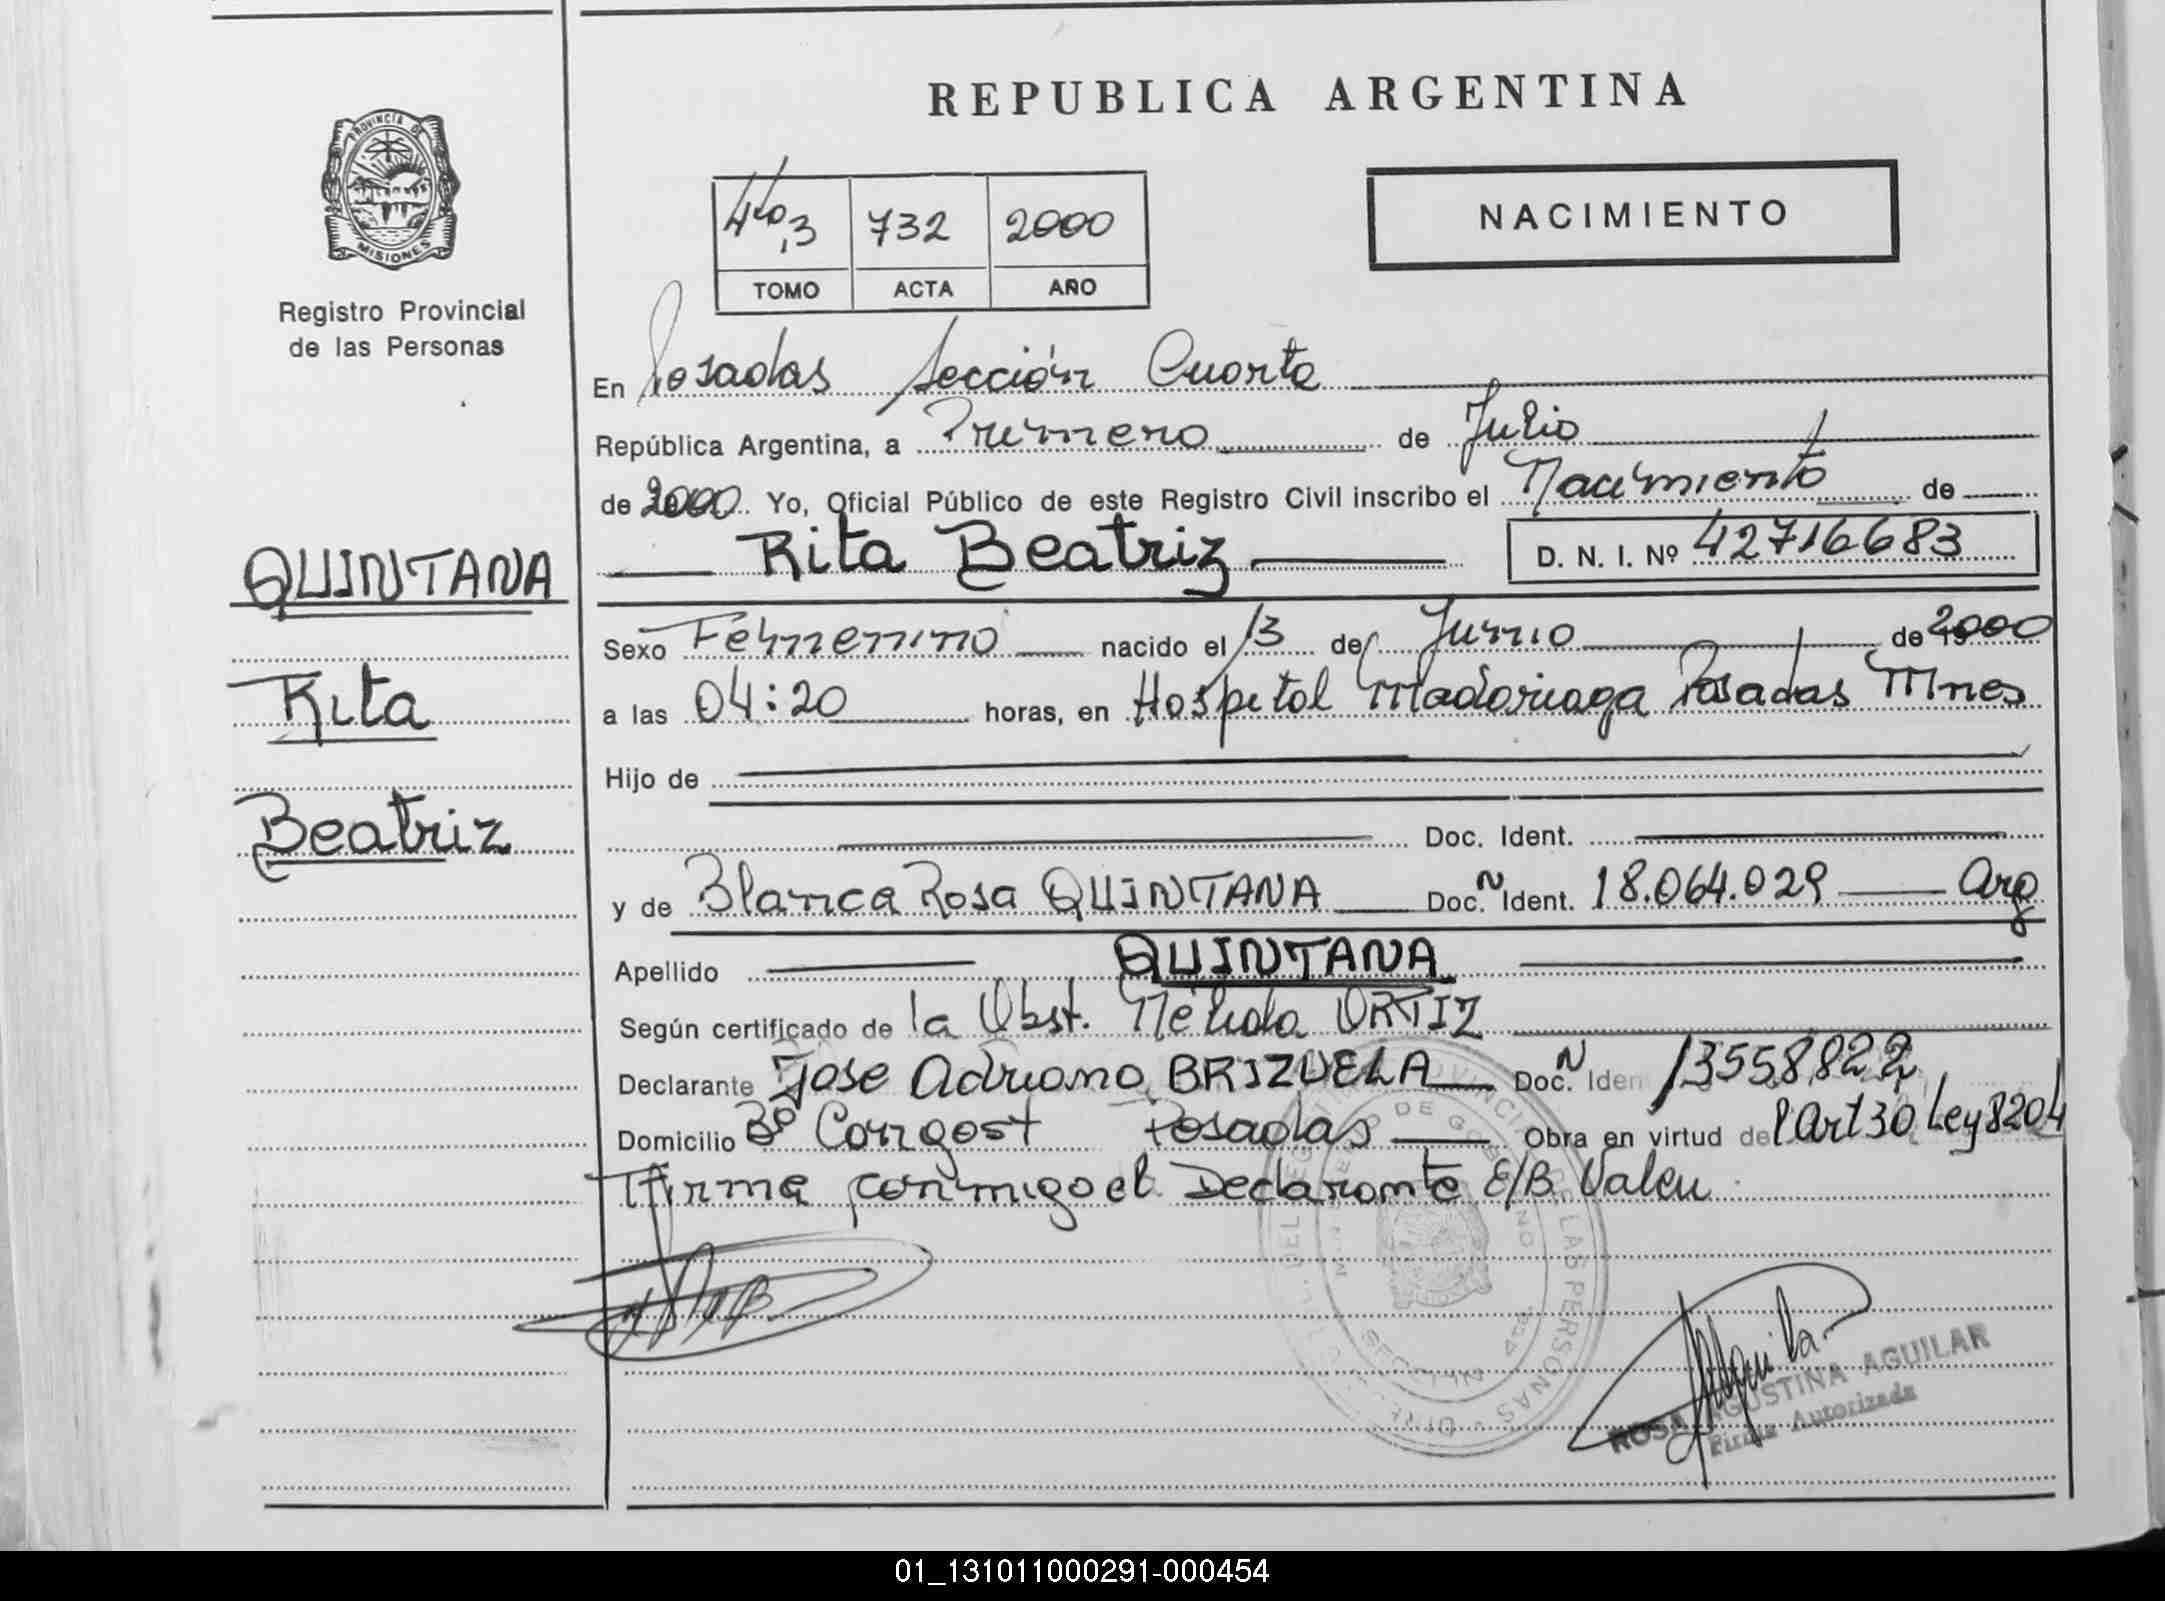 REPUBLICA ARGENTINA
PROVINCIA DE
MISIONES
Registro Provincial
de las Personas
4to,3 732 2000
TOMO ACTA AÑO
NACIMIENTO
En Posadas Sección Cuarta
República Argentina, a Primero de Julio
de 2000 Yo, Oficial Público de este Registro Civil inscribo el Nacimiento de
Rita Beatriz D. N. I. Nº 42716683
QUINTANA
Rita
Beatriz
Sexo Femenino nacido el 13 de Junio de 2000
a las 04:20 horas, en Hospital Madariaga Posadas Mnes
Hijo de
Doc. Ident.
y de Blanca Rosa QUINTANA Doc. N Ident. 18.064.029 Arg
Apellido QUINTANA
Según certificado de la Obst. Nélida ORTIZ
Declarante Jose Adriano BRIZUELA Doc. N Iden 13558822
Domicilio Bº Congost Posadas Obra en virtud de l Art 30 Ley 8204
Firma conmigo el Declarante E/B Vale
ROSA AGUSTINA AGUILAR
Firma Autorizada
01_131011000291-000454